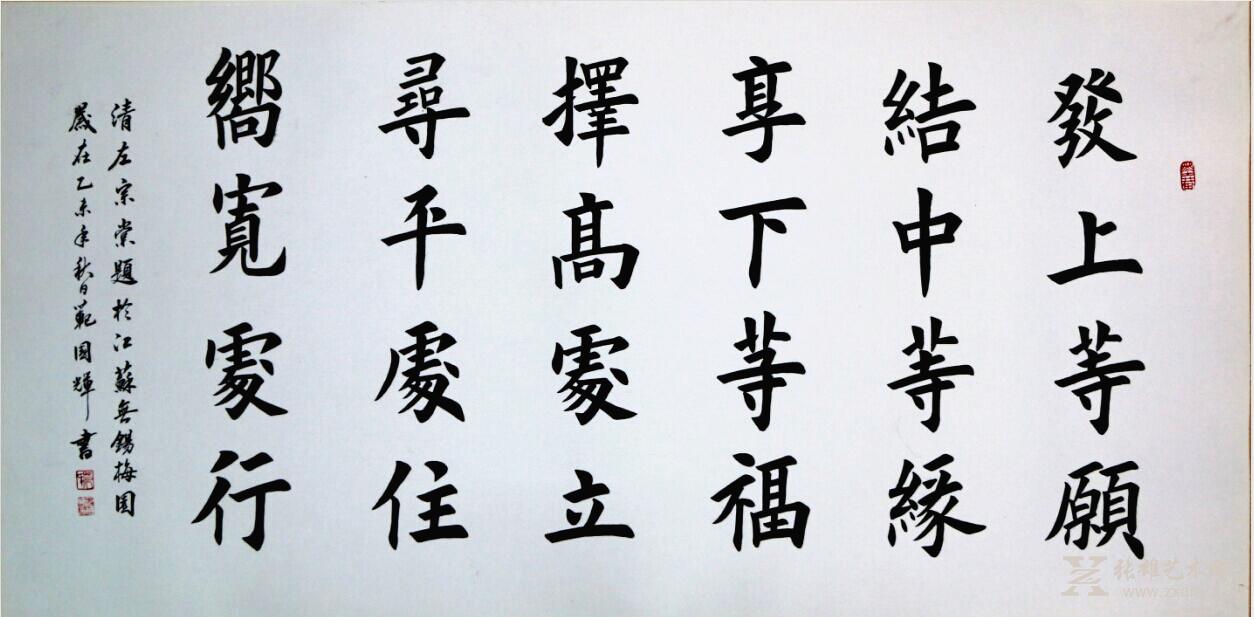 發上等願
結中等緣
享下等福
擇髙處立
尋平處住
嚮寬處行
清左宗棠題於江蘇無錫梅園
歲在乙未年秋日範國輝書
张雄艺术网